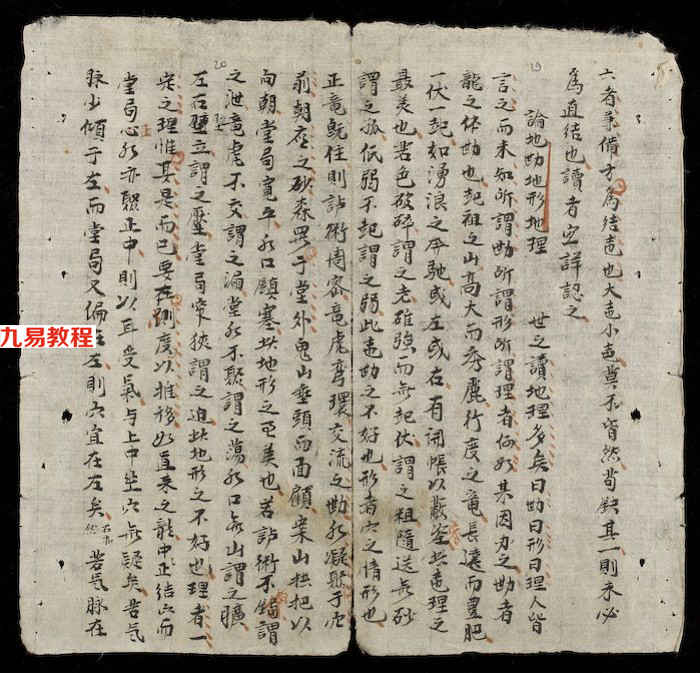 19
六者兼備方為結地也大地小地莫不皆然苟缺其一則未必
為真結也讀者宜詳認之
論地勘地形地理 世之讀地理多矣曰勘曰形曰理人皆
言之而未知所謂勘所謂形所謂理者何如某因勘者
龍之体勘也起祖之山高大而秀麗行度之竜長遠而豊肥
一伏一起如湧浪之奔馳或左或右有開帳以蔽此地理之
最美也若色破碎謂之老雄強而無起伏謂之粗隨送無砂
謂之孤低弱不起謂之弱此地勘之不好也形者穴之情形也
20
正竜既住則衛周密竜虎弯環交流之勘水凝聚于
前朝应之砂森羅于堂外鬼山垂頭而面顧案山拱把以
向朝堂局寛平水口鎮塞此地形之至美也若衛不謂
之泄竜虎不交謂之漏堂水不聚謂之蕩水口無山謂之曠
左右壁立謂之壓堂局窄狭謂之迫此地形之不好也理者一
定之理惟其是而已要在度以推移如直来之龍中正結穴而
堂局心水亦聚正中則以耳受氣与上中坐穴無疑矣若气
脉少傾于左而堂局又偏在左則穴宜在左矣右亦然若气脉在
九易教程